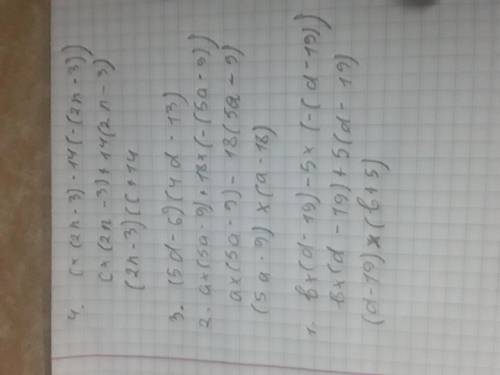 4. c×(2n-3)-14(-(2n-3))
c×(2n-3)+14(2n-3)
(2n-3)(c+14
3. (5d-6)(4d-13)
2. a×(5a-9)+18×(-(5a-9))
a×(5a-9)-18(5a-9)
(5a-9)×(a-18)
1. b×(d-19)-5×(-(d-19))
b×(d-19)+5(d-19)
(d-19)×(b+5)